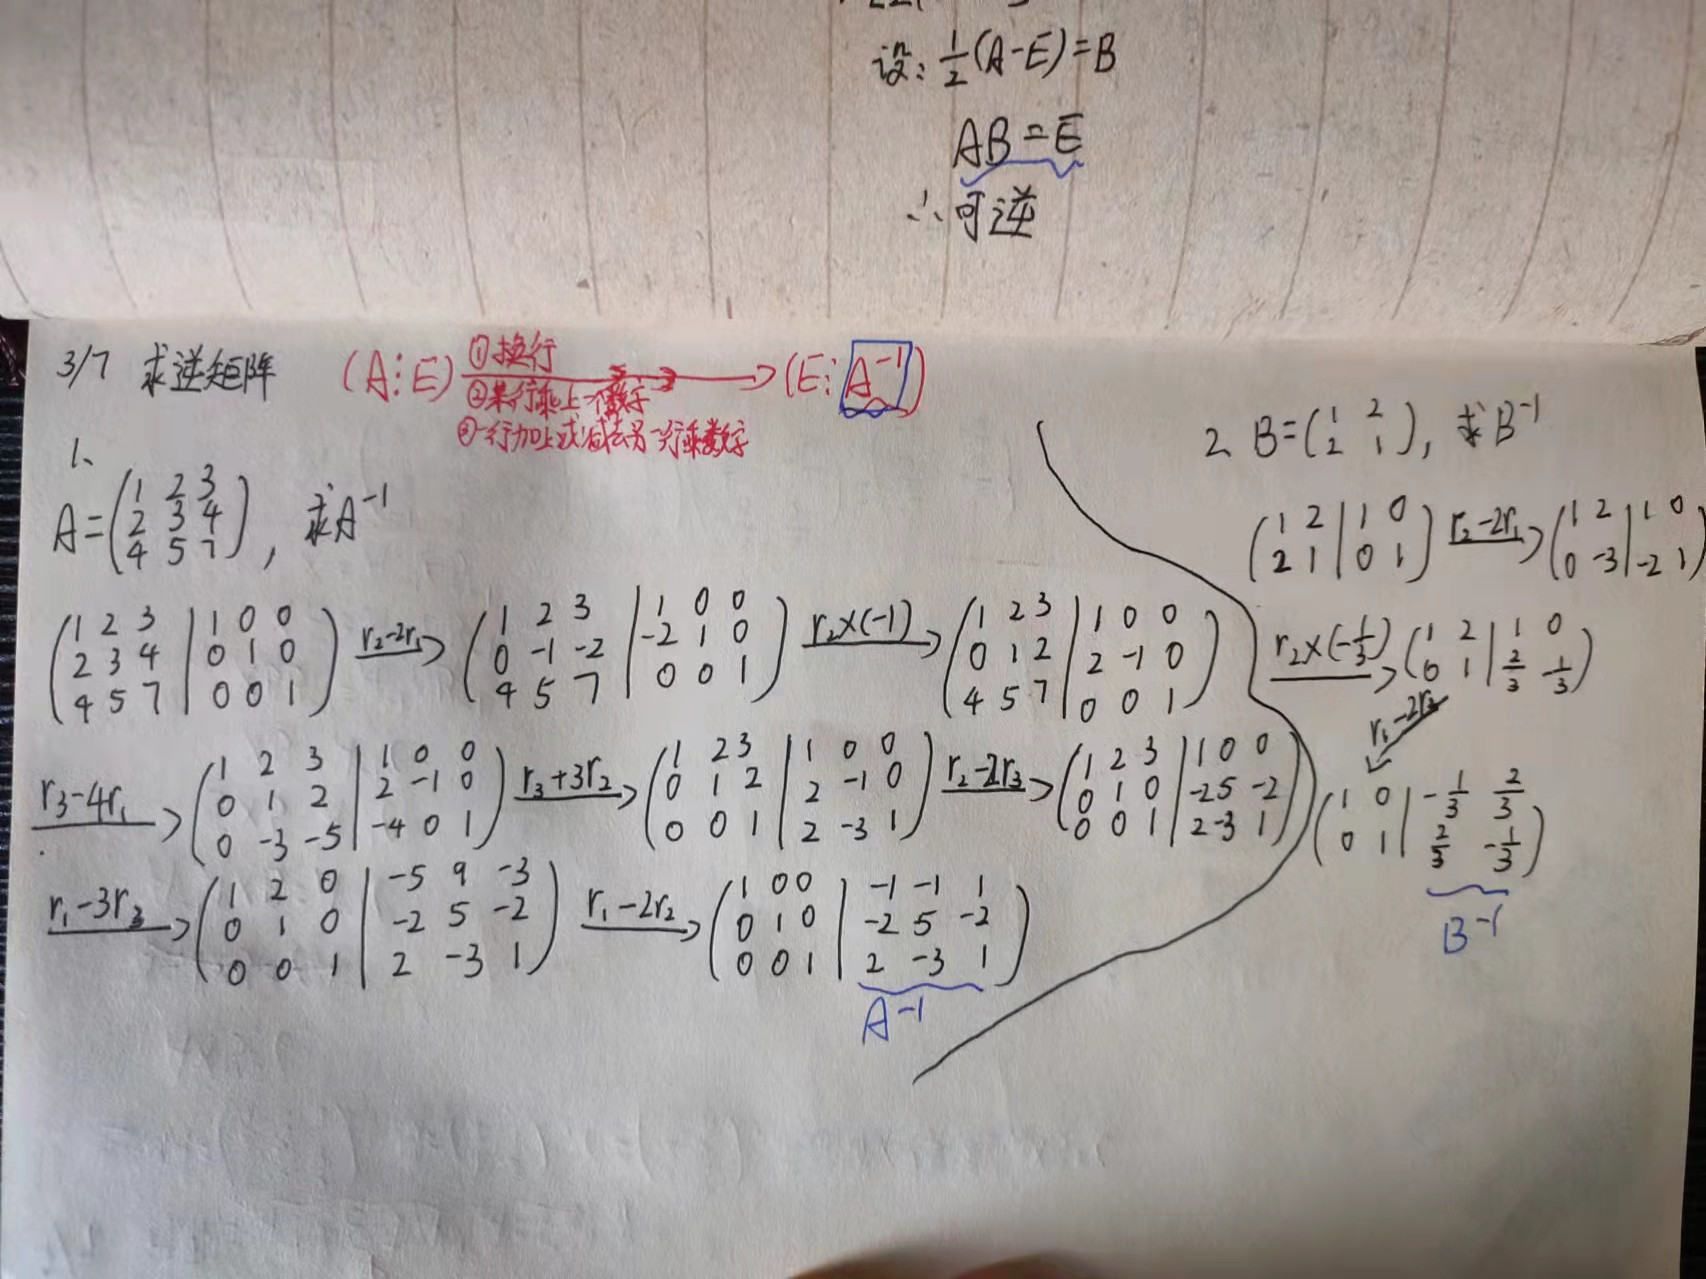 设: 1/2(A-E)=B
AB=E
∴可逆
3/7 求逆矩阵 (A⋮E) → (E⋮A⁻¹)
①换行
②某行乘上一个数字
③一行加上或减去另一行乘数字
1、
A=(1 2 3
2 3 4
4 5 7), 求A⁻¹
(1 2 3 | 1 0 0
2 3 4 | 0 1 0
4 5 7 | 0 0 1)
r₂-2r₁→
(1 2 3 | 1 0 0
0 -1 -2 | -2 1 0
4 5 7 | 0 0 1)
r₂×(-1)→
(1 2 3 | 1 0 0
0 1 2 | 2 -1 0
4 5 7 | 0 0 1)
r₃-4r₁→
(1 2 3 | 1 0 0
0 1 2 | 2 -1 0
0 -3 -5 | -4 0 1)
r₃+3r₂→
(1 2 3 | 1 0 0
0 1 2 | 2 -1 0
0 0 1 | 2 -3 1)
r₂-2r₃→
(1 2 3 | 1 0 0
0 1 0 | -2 5 -2
0 0 1 | 2 -3 1)
r₁-3r₃→
(1 2 0 | -5 9 -3
0 1 0 | -2 5 -2
0 0 1 | 2 -3 1)
r₁-2r₂→
(1 0 0 | -1 -1 1
0 1 0 | -2 5 -2
0 0 1 | 2 -3 1)
A⁻¹
2. B=(1 2
2 1), 求B⁻¹
(1 2 | 1 0
2 1 | 0 1)
r₂-2r₁→
(1 2 | 1 0
0 -3 | -2 1)
r₂×(-1/3)→
(1 2 | 1 0
0 1 | 2/3 -1/3)
r₁-2r₂
(1 0 | -1/3 2/3
0 1 | 2/3 -1/3)
B⁻¹